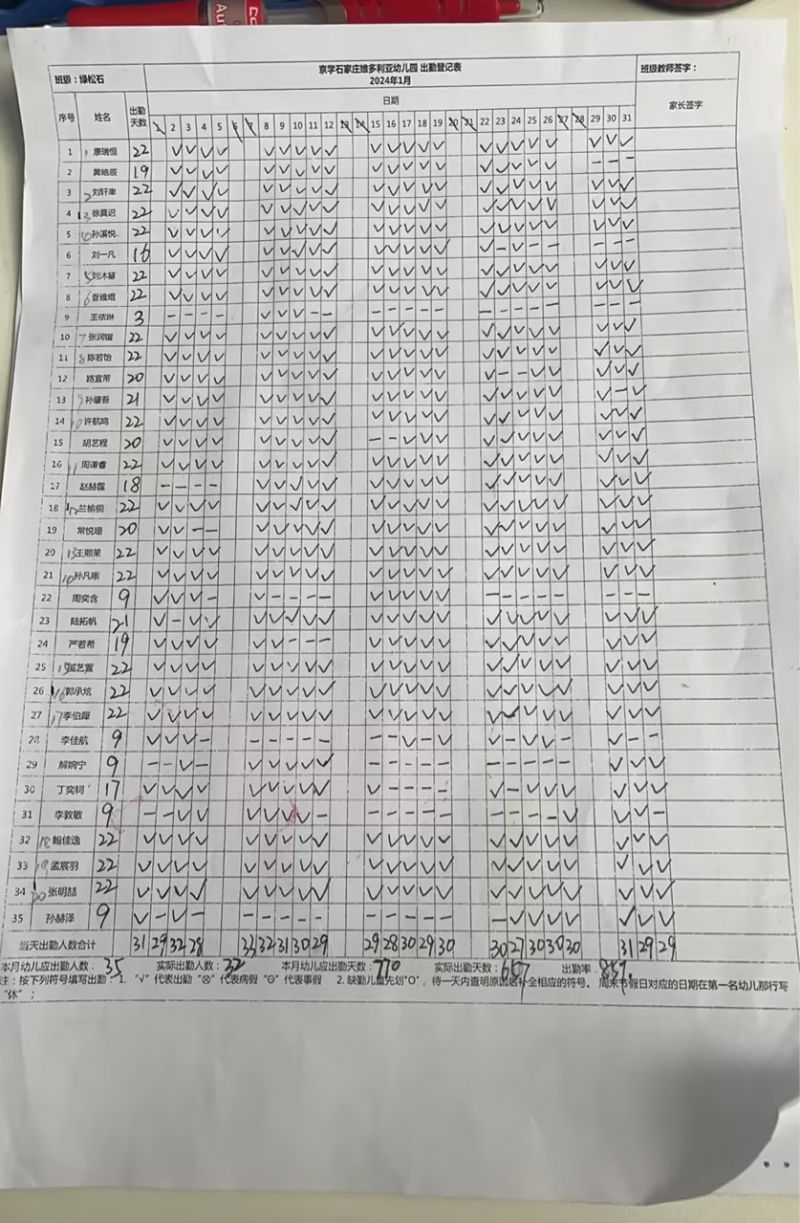 京学石家庄维多利亚幼儿园 出勤登记表
班级：绿松石 2024年1月 班级教师签字：
序号 姓名 出勤天数 日期 家长签字
1 2 3 4 5 6 7 8 9 10 11 12 13 14 15 16 17 18 19 20 21 22 23 24 25 26 27 28 29 30 31
1 康瑞恒 22 √ √ √ √ √ √ √ √ √ √ √ √ √ √ √ √ √ √ √ √ √ √
2 黄皓辰 19 √ √ √ √ √ √ √ √ √ √ √ √ √ √ √ √ √ √ √ - - -
3 刘轩聿 22 √ √ √ √ √ √ √ √ √ √ √ √ √ √ √ √ √ √ √ √ √ √
4 徐莫迟 22 √ √ √ √ √ √ √ √ √ √ √ √ √ √ √ √ √ √ √ √ √ √
5 孙溪悦 22 √ √ √ √ √ √ √ √ √ √ √ √ √ √ √ √ √ √ √ √ √ √
6 刘一凡 16 √ √ √ √ √ √ √ √ √ √ √ √ √ √ √ - √ - - - - -
7 刘沐赫 22 √ √ √ √ √ √ √ √ √ √ √ √ √ √ √ √ √ √ √ √ √ √
8 22 √ √ √ √ √ √ √ √ √ √ √ √ √ √ √ √ √ √ √ √ √ √
9 王依琳 3 - - - - √ √ √ - - - - - - - - - - - - - - -
10 22 √ √ √ √ √ √ √ √ √ √ √ √ √ √ √ √ √ √ √ √ √ √
11 陈若怡 22 √ √ √ √ √ √ √ √ √ √ √ √ √ √ √ √ √ √ √ √ √ √
12 路宣芾 20 √ √ √ √ √ √ √ √ √ √ √ √ √ √ √ - - √ √ √ √ √
13 孙肇吾 21 √ √ √ √ √ √ √ √ √ √ √ √ √ √ √ √ √ √ √ √ - √
14 许航鸣 22 √ √ √ √ √ √ √ √ √ √ √ √ √ √ √ √ √ √ √ √ √ √
15 胡艺程 20 √ √ √ √ √ √ √ √ √ - - √ √ √ √ √ √ √ √ √ √ √
16 周谦睿 22 √ √ √ √ √ √ √ √ √ √ √ √ √ √ √ √ √ √ √ √ √ √
17 赵赫霆 18 - - - - √ √ √ √ √ √ √ √ √ √ √ √ √ √ √ √ √ √
18 兰榆侗 22 √ √ √ √ √ √ √ √ √ √ √ √ √ √ √ √ √ √ √ √ √ √
19 常悦珊 20 √ √ - - √ √ √ √ √ √ √ √ √ √ √ √ √ √ √ √ √ √
20 王顺莱 22 √ √ √ √ √ √ √ √ √ √ √ √ √ √ √ √ √ √ √ √ √ √
21 孙凡晰 22 √ √ √ √ √ √ √ √ √ √ √ √ √ √ √ √ √ √ √ √ √ √
22 周奕含 9 √ √ √ - √ - - - - √ √ √ √ √ - - - - - - - -
23 陆拓帆 21 √ - √ √ √ √ √ √ √ √ √ √ √ √ √ √ √ √ √ √ √ √
24 严若希 19 √ √ √ √ √ √ - - - √ √ √ √ √ √ √ √ √ √ √ √ √
25 22 √ √ √ √ √ √ √ √ √ √ √ √ √ √ √ √ √ √ √ √ √ √
26 郭承炫 22 √ √ √ √ √ √ √ √ √ √ √ √ √ √ √ √ √ √ √ √ √ √
27 李伯犀 22 √ √ √ √ √ √ √ √ √ √ √ √ √ √ √ √ √ √ √ √ √ √
28 李佳航 9 √ √ √ - - - - - - - - √ - √ √ - √ √ - √ - -
29 解婉宁 9 - - √ - √ √ √ √ √ - - - - - - - - - - √ √ √
30 丁奕轲 17 √ √ √ √ √ √ √ √ √ √ - - - - √ - √ √ √ √ √ √
31 李敦敏 9 - - √ √ √ √ √ √ - - - - - - - - - - √ √ √ -
32 鲍佳逸 22 √ √ √ √ √ √ √ √ √ √ √ √ √ √ √ √ √ √ √ √ √ √
33 孟宸羽 22 √ √ √ √ √ √ √ √ √ √ √ √ √ √ √ √ √ √ √ √ √ √
34 张明喆 22 √ √ √ √ √ √ √ √ √ √ √ √ √ √ √ √ √ √ √ √ √ √
35 孙赫泽 9 √ - √ - - - - - - - - - - - - √ √ √ √ √ √ √
当天出勤人数合计 31 29 32 28 33 32 31 30 29 29 28 30 29 30 30 27 30 30 30 31 29 29
本月幼儿应出勤人数：35 实际出勤人数：32 本月幼儿应出勤天数：770 实际出勤天数：657 出勤率：85%
注：按下列符号填写出勤：1. “√”代表出勤 “⊗”代表病假 “⊖”代表事假 2. 缺勤儿童先划“O”，待一天内查明原因后补全相应的符号。 周末节假日对应的日期在第一名幼儿那行写
“休”；